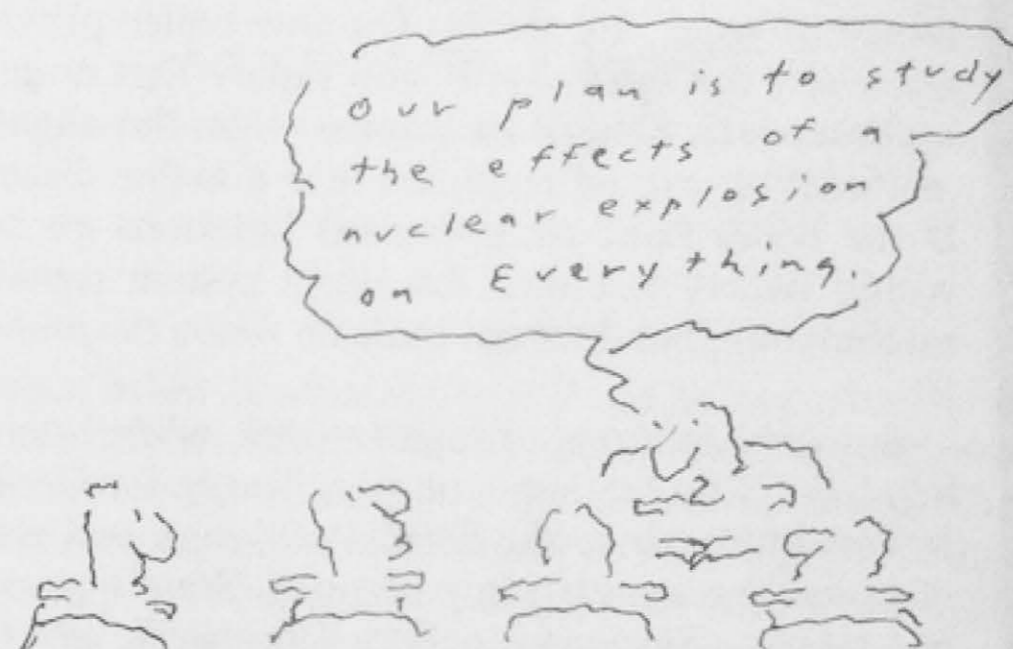 Our plan is to study
the effects of a
nuclear explosion
on Everything.